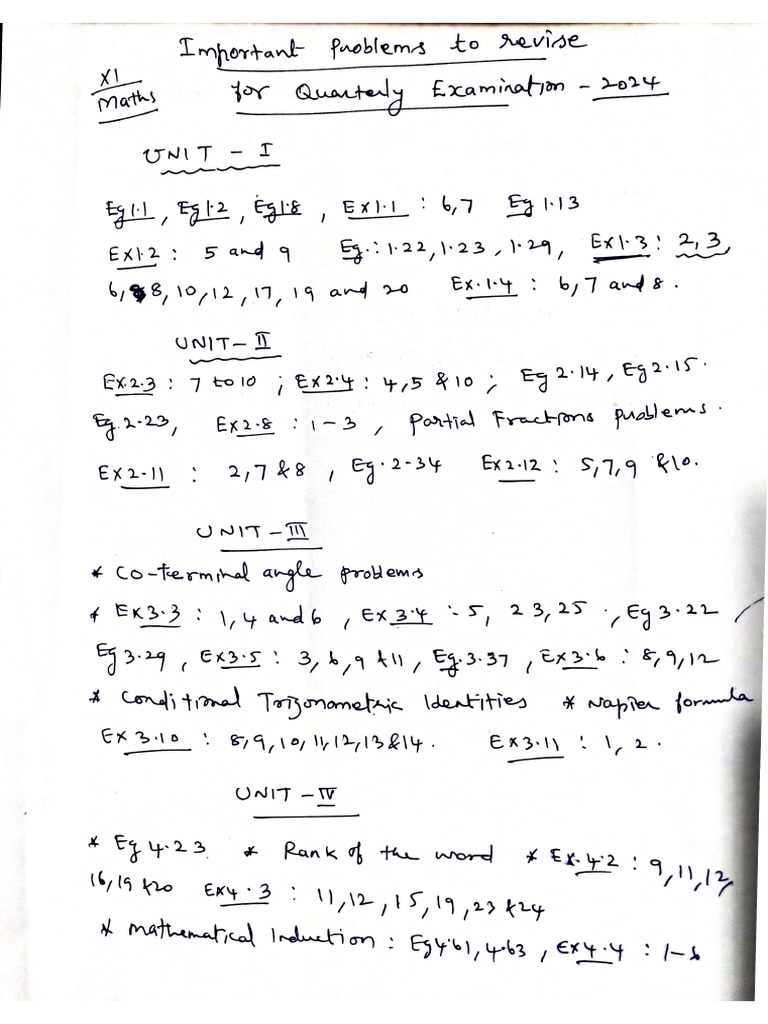 Important Problems to revise
XI
Maths
for Quarterly Examination - 2024
UNIT - I
Eg 1.1, Eg 1.2, Eg 1.8, Ex 1.1 : 6,7 Eg 1.13
Ex 1.2 : 5 and 9 Eg.: 1.22, 1.23, 1.29, Ex 1.3 : 2,3,
6, 8, 10, 12, 17, 19 and 20 Ex. 1.4 : 6, 7 and 8.
UNIT - II
Ex. 2.3 : 7 to 10 ; Ex 2.4 : 4,5 & 10 ; Eg 2.14, Eg 2.15.
Eg. 2.23, Ex 2.8 : 1-3, Partial Fractions problems.
Ex 2.11 : 2,7 & 8, Eg. 2.34 Ex 2.12 : 5,7,9 & 10.
UNIT - III
* Co-terminal angle problems
* Ex 3.3 : 1,4 and 6, Ex 3.4 :- 5, 23, 25., Eg 3.22
Eg 3.29, Ex 3.5 : 3, 6, 9 & 11, Eg. 3.37, Ex 3.6 : 8,9,12
* Conditional Trigonometric Identities * Napier formula
Ex 3.10 : 8,9,10,11,12,13 & 14. Ex 3.11 : 1, 2.
UNIT - IV
* Eg 4.23 * Rank of the word * Ex. 4.2 : 9,11,12,
16,19 & 20 Ex 4.3 : 11,12, 15, 19, 23 & 24
* Mathematical Induction : Eg 4.61, 4.63, Ex 4.4 : 1-6